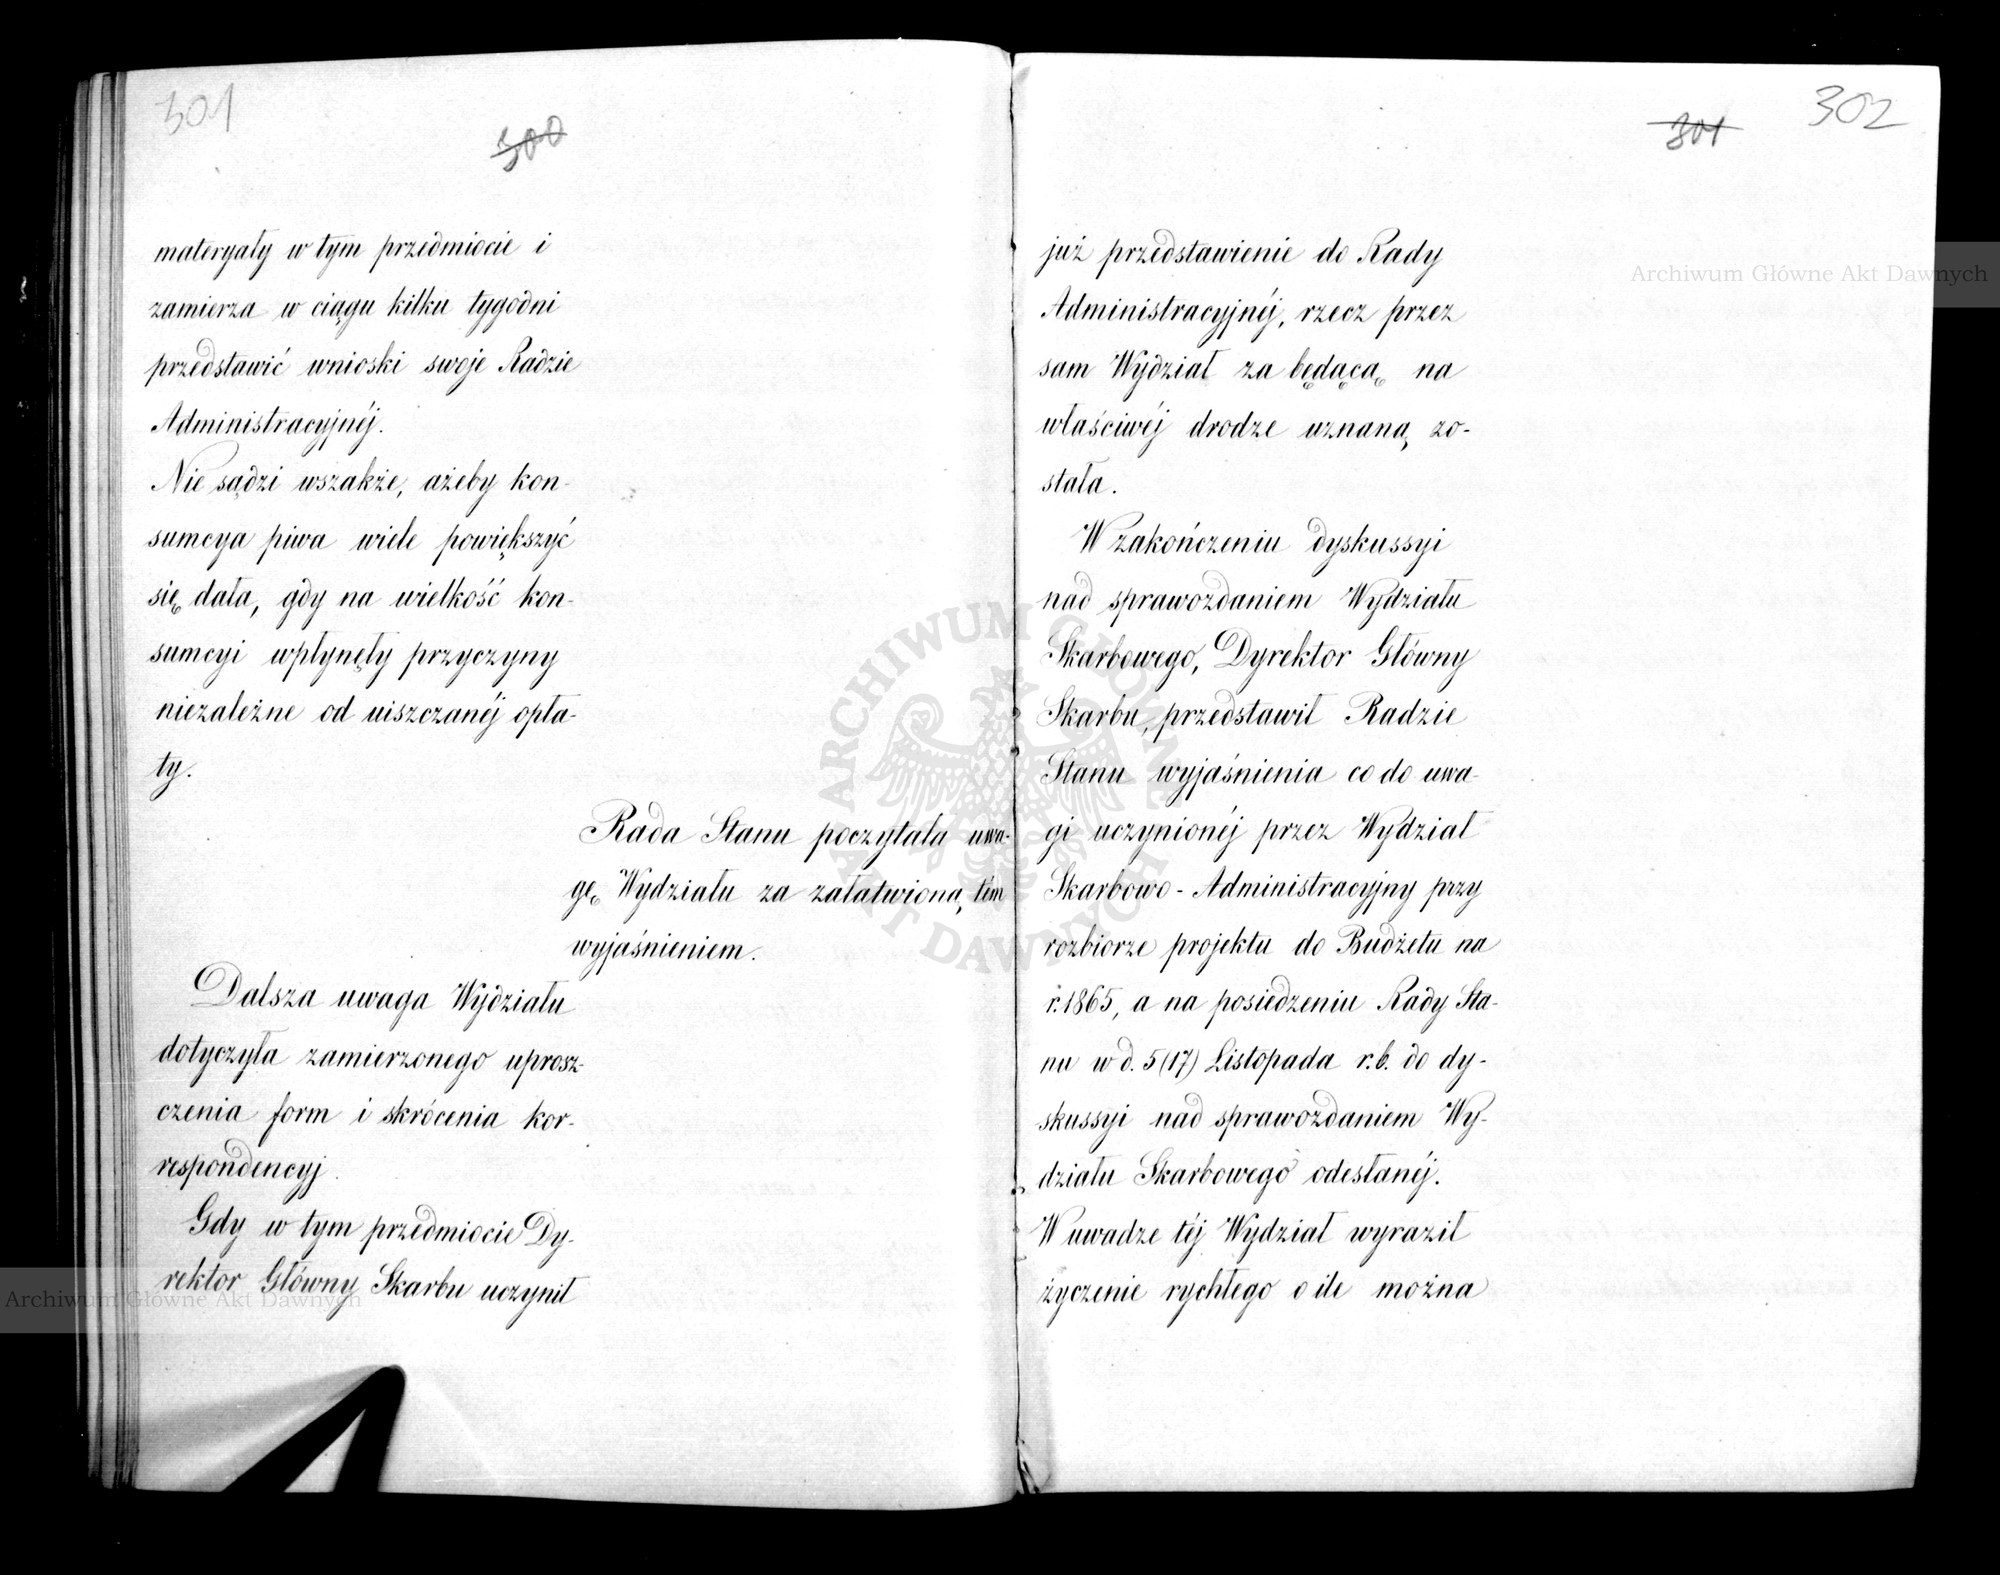 301
300
materyały w tym przedmiocie i
zamierza w ciągu kilku tygodni
przedstawić wnioski swoje Radzie
Administracyjnéj.
Nie sądzi wszakże, ażeby kon-
sumcya piwa wiele powiększyć
się dała, gdy na wielkość kon-
sumcyi wpłynęły przyczyny
niezależne od uiszczanéj opła-
ty.
Rada Stanu poczytała uwa-
gę Wydziału za załatwioną tém
wyjaśnieniem.
Dalsza uwaga Wydziału
dotyczyła zamierzonego uprosz-
czenia form i skrócenia kor-
respondencyj.
Gdy w tym przedmiocie Dy-
rektor Główny Skarbu uczynił
302
301
już przedstawienie do Rady
Administracyjnéj, rzecz przez
sam Wydział za będącą na
właściwéj drodze uznaną zo-
stała.
W zakończeniu dyskussyi
nad sprawozdaniem Wydziału
Skarbowego, Dyrektor Główny
Skarbu, przedstawił Radzie
Stanu wyjaśnienia co do uwa-
gi uczynionéj przez Wydział
Skarbowo-Administracyjny przy
rozbiorze projektu do Budżetu na
r. 1865, a na posiedzeniu Rady Sta-
nu w d. 5 (17) Listopada r.b. do dy-
skussyi nad sprawozdaniem Wy-
działu Skarbowego odesłanéj.
W uwadze téj Wydział wyraził
życzenie rychłego o ile można
Archiwum Główne Akt Dawnych
Archiwum Główne Akt Dawnych
ARCHIWUM GŁÓWNE AKT DAWNYCH